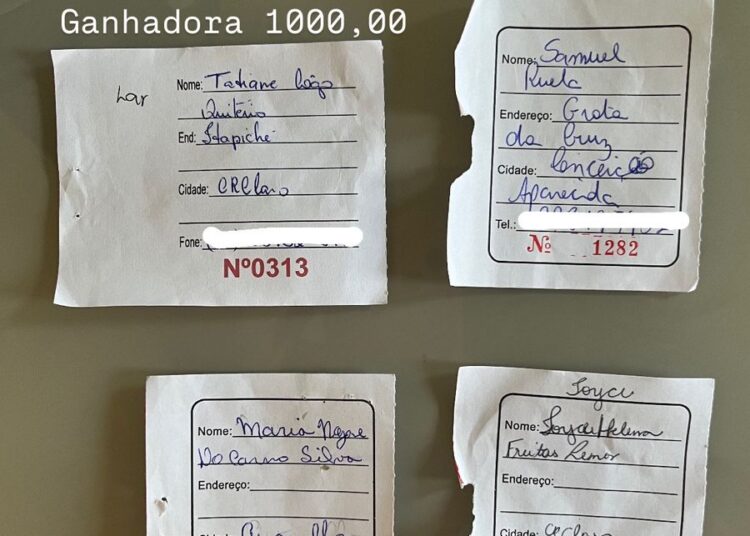 Ganhadora 1000,00
Lar
Nome: Tatiane
Quitério
End: Itapiché
Cidade: CRClaro
Fone:
Nº0313
Nome: Samuel
Ruela
Endereço: Grota
da Cruz
Cidade: Conceição
Aparecida
Tel.:
Nº 1282
Nome: Maria
Do Carmo Silva
Endereço:
Joyce
Nome: Joyce Helena
Freitas
Endereço:
Cidade: CRClaro